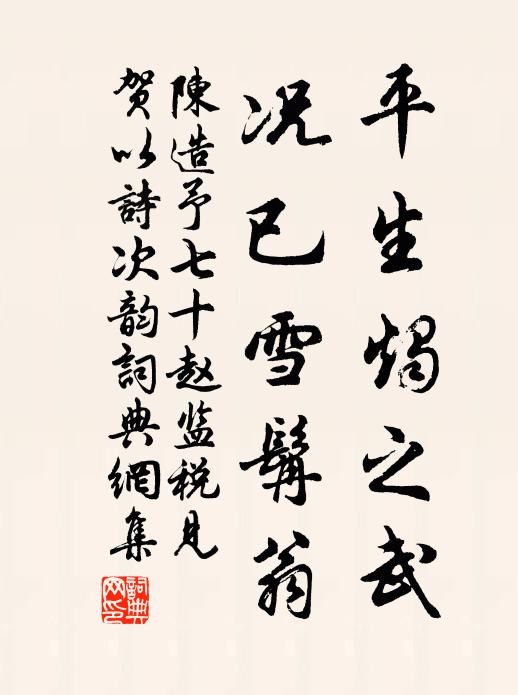 平生燭之武
况已雪髯翁
陳造予七十赵监税見
贺以詩次韵詞典網集